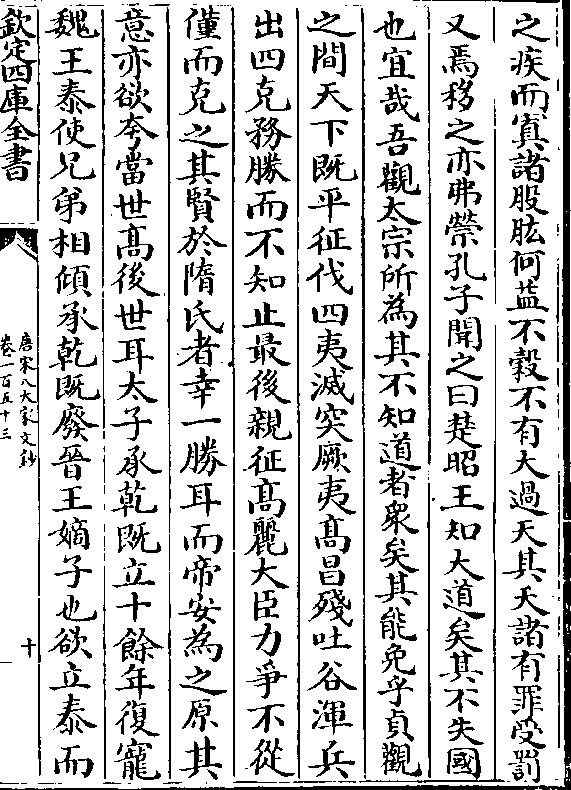 之疾而寘諸股肱何益不穀不有大過天其夭諸有罪受罰
又焉移之亦弗禜孔子聞之曰楚昭王知大道矣其不失國
也宜哉吾觀太宗所為其不知道者衆矣其能免乎貞觀
之間天下既平征伐四夷滅突厥夷髙昌殘吐谷渾兵
出四克務勝而不知止最後親征髙麗大臣力爭不從
僅而克之其賢於隋氏者幸一勝耳而帝安為之原其
意亦欲夸當世髙後世耳太子承乾既立十餘年復寵
魏王泰使兄弟相傾承乾既廢晉王嫡子也欲立泰而
欽定四庫全書
唐宋八大家文鈔
卷一百五十三
十